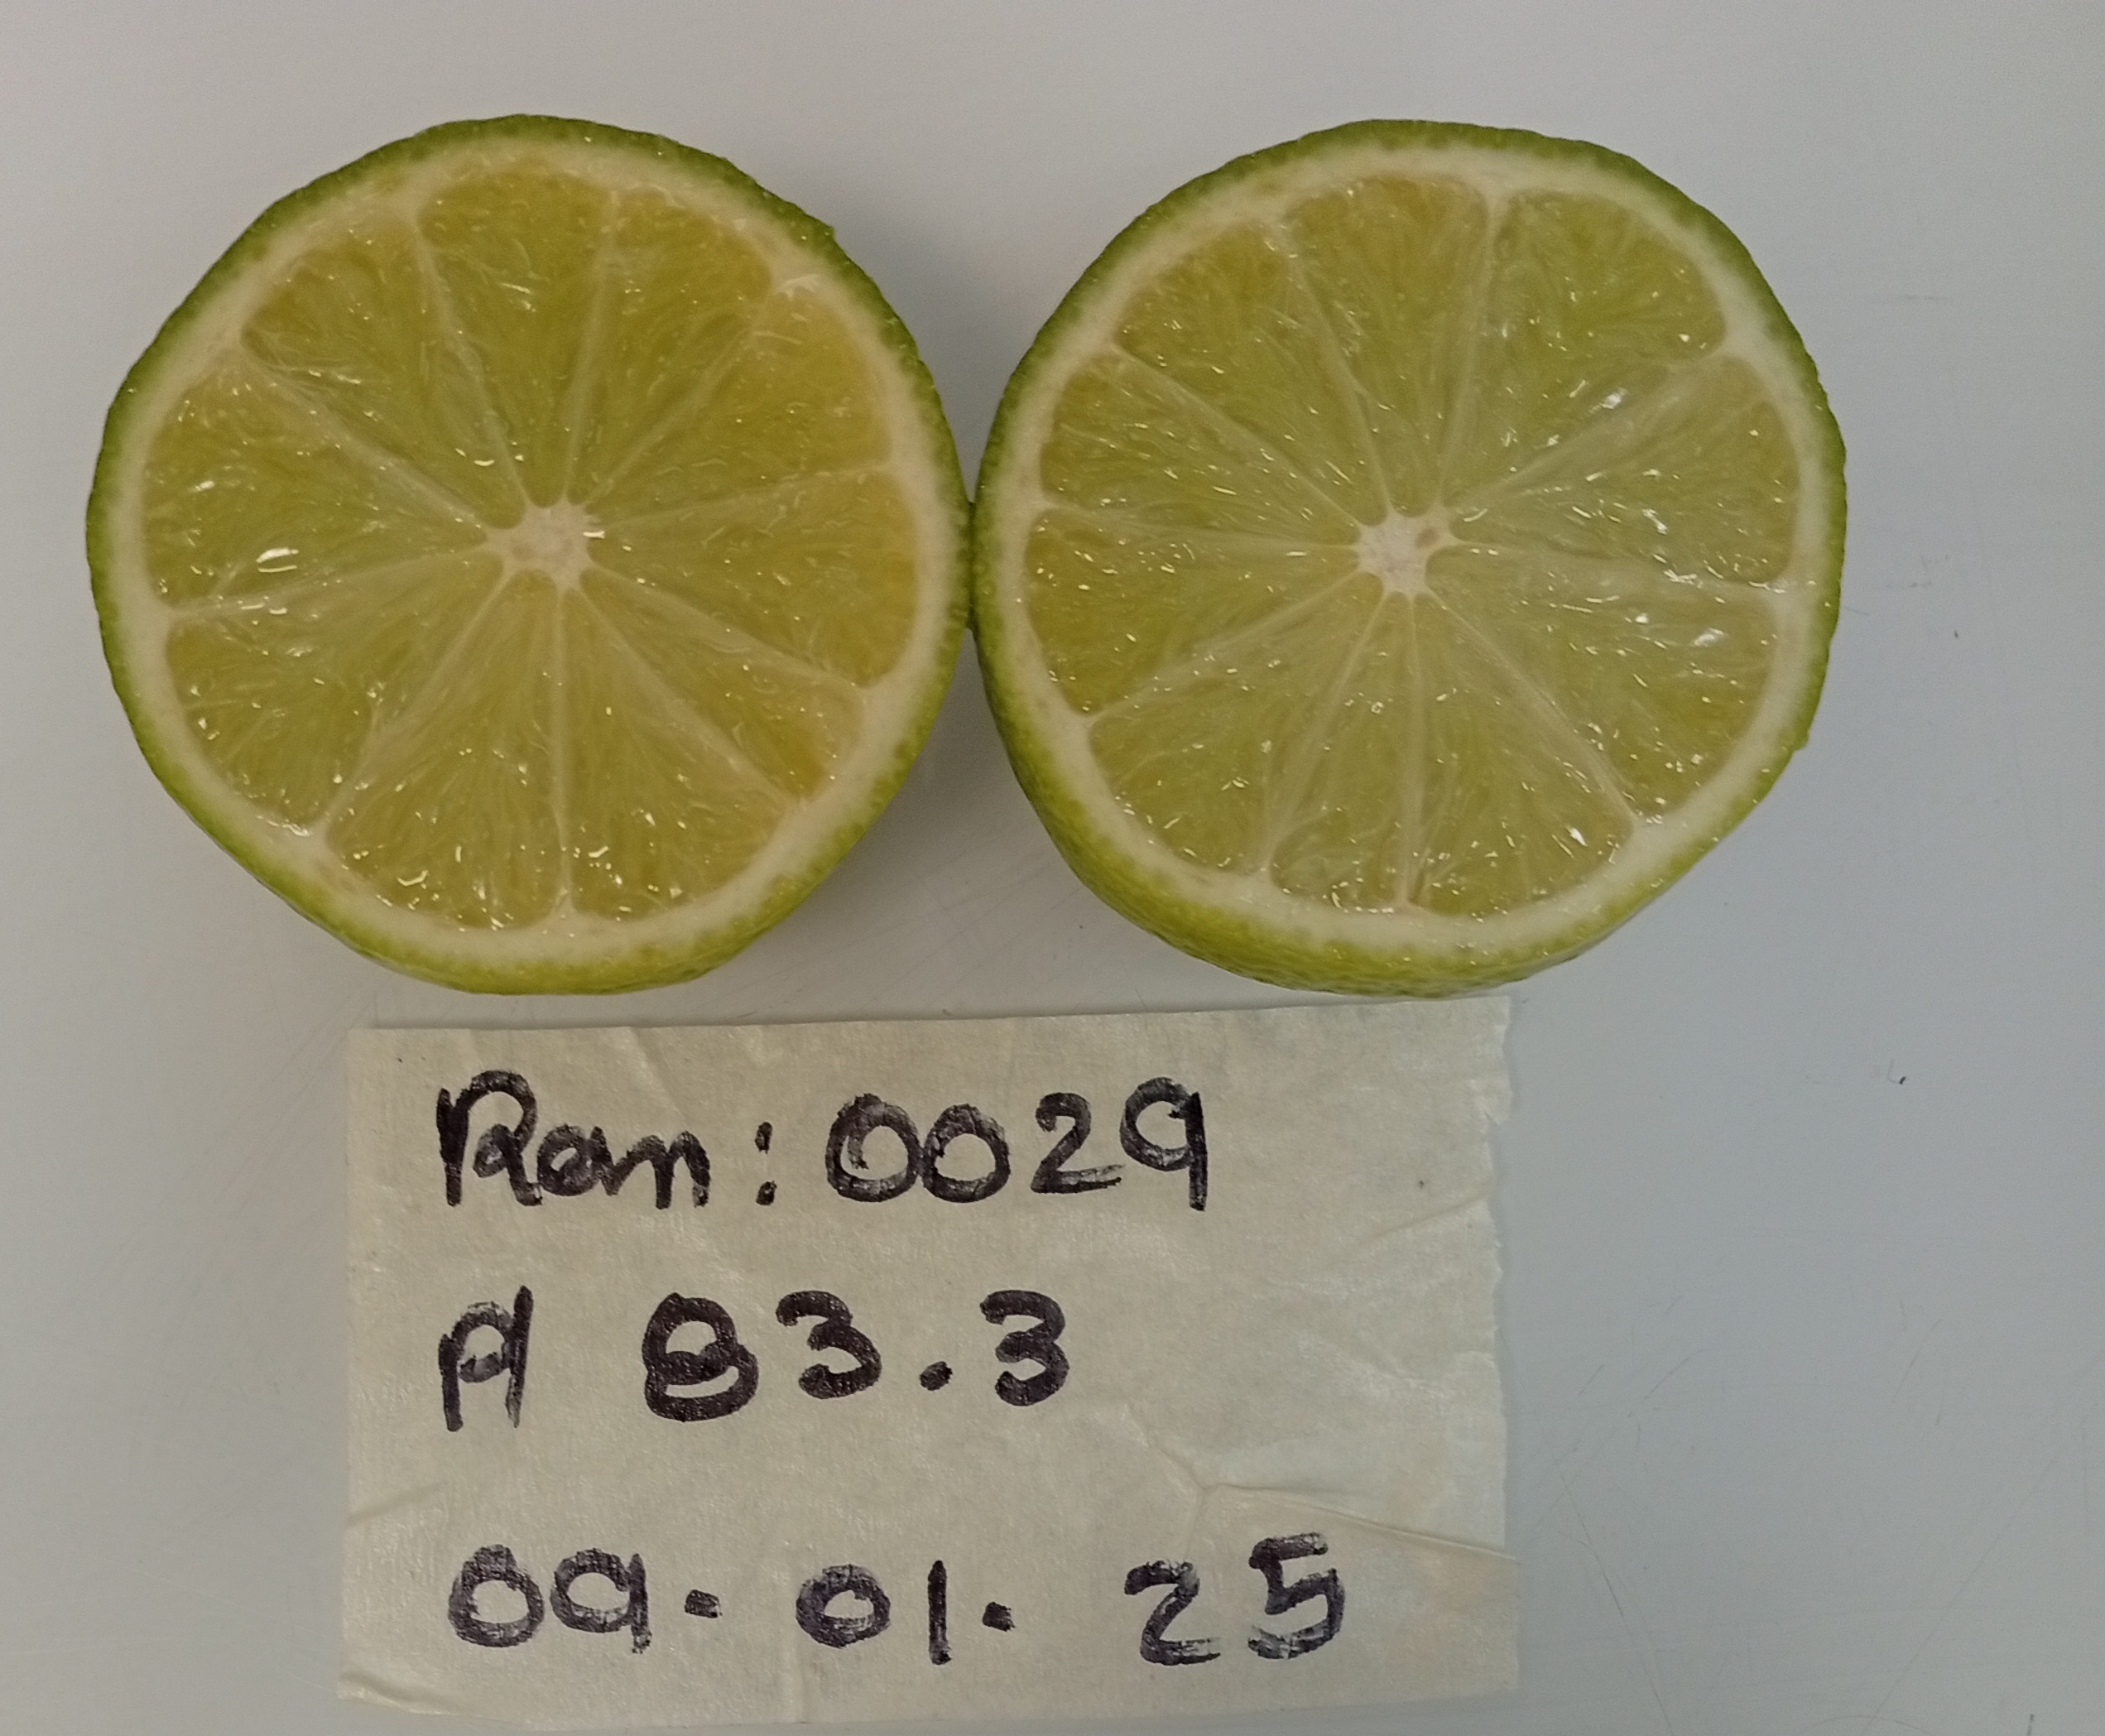 Ram: 0029
A 83.3
09.01.25